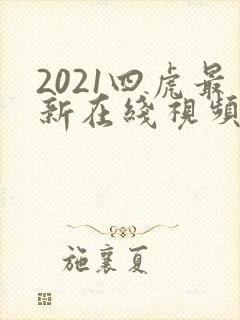 2021四虎最
新在綫視頻
施襄夏